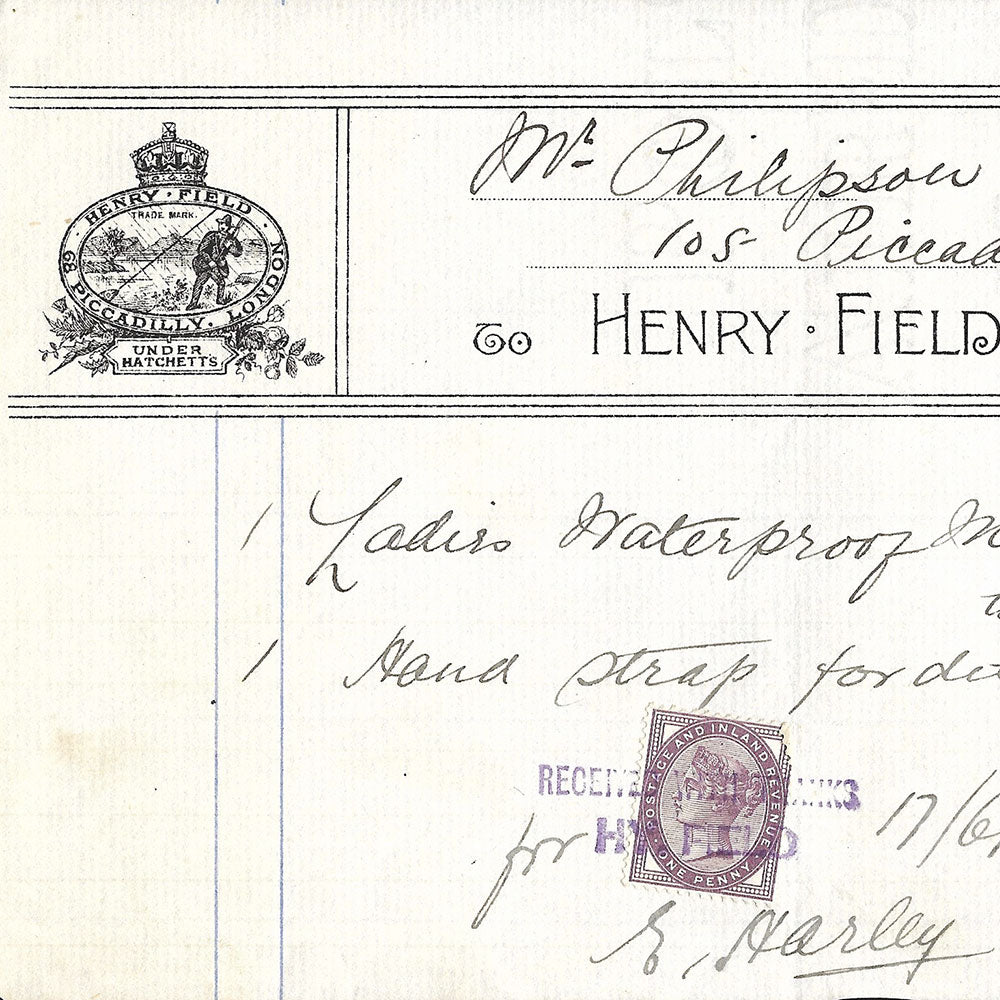 HENRY · FIELD
TRADE MARK.
68 PICCADILLY. LONDON
UNDER
HATCHETTS
Mr Philipson
105 Piccad
To HENRY · FIELD
1 Ladies Waterproof M
1 Hand strap for
POSTAGE AND INLAND REVENUE
ONE PENNY
RECEIVE
HY FIELD
for 17/6/
E, Harley